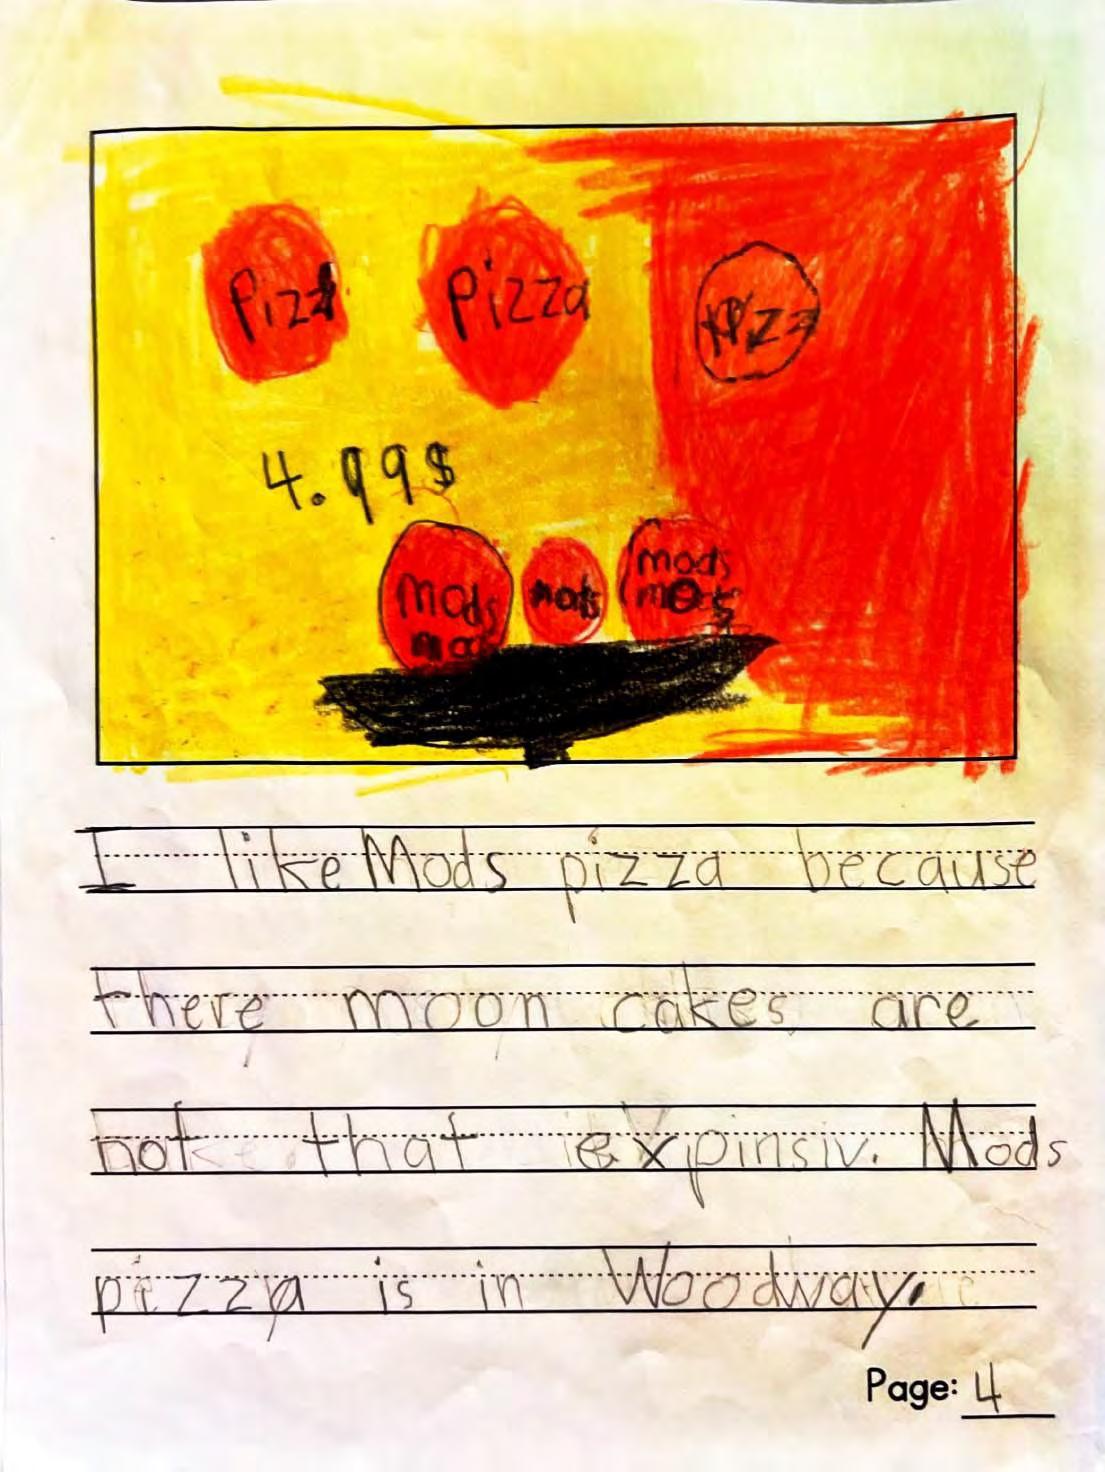 Pizza
Pizza
Pizz
4.99$
mods
mods
mods
mods
I like Mods pizza because
there moon cakes are
not that expinsiv. Mods
pizza is in Woodway.
Page: 4